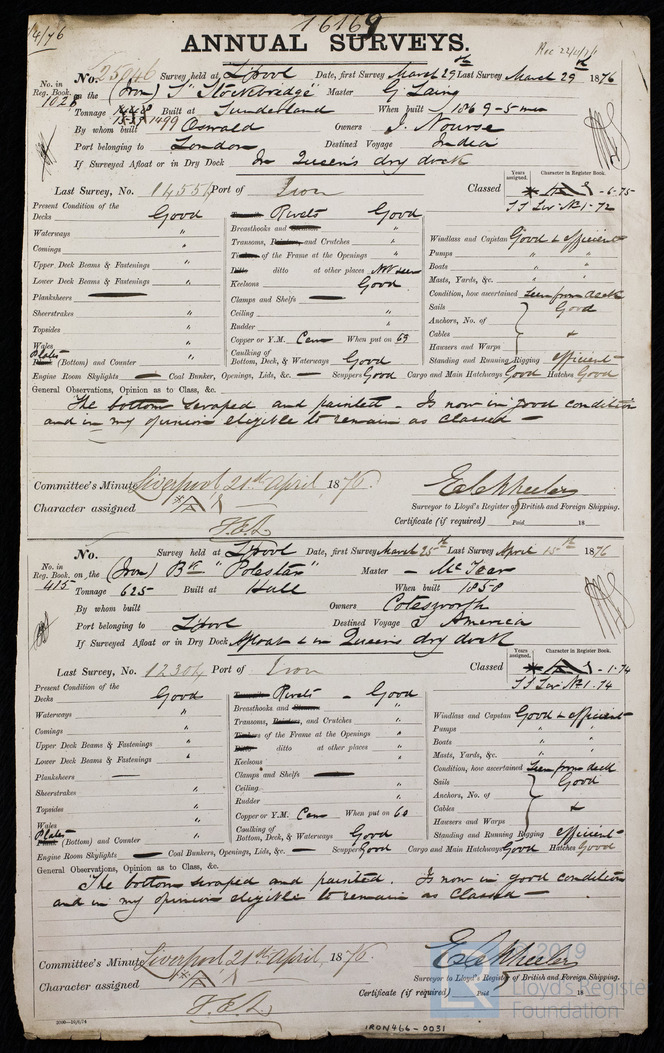 16169
4/76
ANNUAL SURVEYS.
Rec 22/4/76
No. Survey held at L'pool Date, first Survey March 29th Last Survey March 29th 1876
No. in Reg. Book. 1028 on the (Iron) S "Stockbridge" Master G. Laing
Tonnage 1499 Built at Sunderland When built 1869-5 mo
By whom built Oswald Owners J. Nourse
Port belonging to London Destined Voyage India
If Surveyed Afloat or in Dry Dock In Queen's dry dock
Years assigned. Character in Register Book.
Last Survey, No. 14554 Port of Iron Classed - 6-75
SS Liv. No. 1-72
Present Condition of the
Decks Good
Waterways "
Comings "
Upper Deck Beams & Fastenings "
Lower Deck Beams & Fastenings "
Planksheers
Sheerstrakes "
Topsides "
Wales "
Plates (Bottom) and Counter "
Rivets Good
Breasthooks and "
Transoms, and Crutches "
of the Frame at the Openings "
ditto at other places Not seen
Keelsons Good
Clamps and Shelfs
Ceiling "
Rudder "
Copper or Y.M. Cem When put on 69
Caulking of Bottom, Deck, & Waterways Good
Windlass and Capstan Good & efficient
Pumps " "
Boats " "
Masts, Yards, &c. " "
Condition, how ascertained Seen from deck
Sails Good
Anchors, No. of
Cables &
Hawsers and Warps
Standing and Running Rigging efficient
Engine Room Skylights Coal Bunker, Openings, Lids, &c. Scuppers Good Cargo and Main Hatchways Good Hatches Good
General Observations, Opinion as to Class, &c.
The bottom scraped and painted - Is now in good condition
and in my opinion eligible to remain as Classed -
Committee's Minute Liverpool 21st April, 1876.
Character assigned
Surveyor to Lloyd's Register of British and Foreign Shipping.
Certificate (if required) Paid 18
No. Survey held at L'pool Date, first Survey March 25th Last Survey April 15th 1876
No. in Reg. Book. 415 on the (Iron) Bk "Polestar" Master - McTear
Tonnage 625 Built at Hull When built 1858
By whom built Owners Cotesworth
Port belonging to L'pool Destined Voyage S America
If Surveyed Afloat or in Dry Dock Afloat & in Queen's dry dock
Years assigned. Character in Register Book.
Last Survey, No. 12304 Port of Iron Classed - 1-74
SS Liv. No. 1-74
Present Condition of the
Decks Good
Waterways "
Comings "
Upper Deck Beams & Fastenings "
Lower Deck Beams & Fastenings "
Planksheers
Sheerstrakes "
Topsides "
Wales "
Plates (Bottom) and Counter "
Rivets - Good
Breasthooks and "
Transoms, and Crutches "
of the Frame at the Openings "
ditto at other places "
Keelsons "
Clamps and Shelfs
Ceiling "
Rudder "
Copper or Y.M. Cem When put on 60
Caulking of Bottom, Deck, & Waterways Good
Windlass and Capstan Good & efficient
Pumps " "
Boats " "
Masts, Yards, &c. " "
Condition, how ascertained Seen from deck
Sails Good
Anchors, No. of
Cables &
Hawsers and Warps
Standing and Running Rigging efficient
Engine Room Skylights Coal Bunkers, Openings, Lids, &c. Scuppers Good Cargo and Main Hatchways Good Hatches Good
General Observations, Opinion as to Class, &c.
The bottom scraped and painted. Is now in good condition
and in my opinion eligible to remain as Classed -
Committee's Minute Liverpool 21st April, 1876.
Character assigned
Surveyor to Lloyd's Register of British and Foreign Shipping.
Certificate (if required) Paid 18
2019
Lloyd's Register
Foundation
IRON466-0031